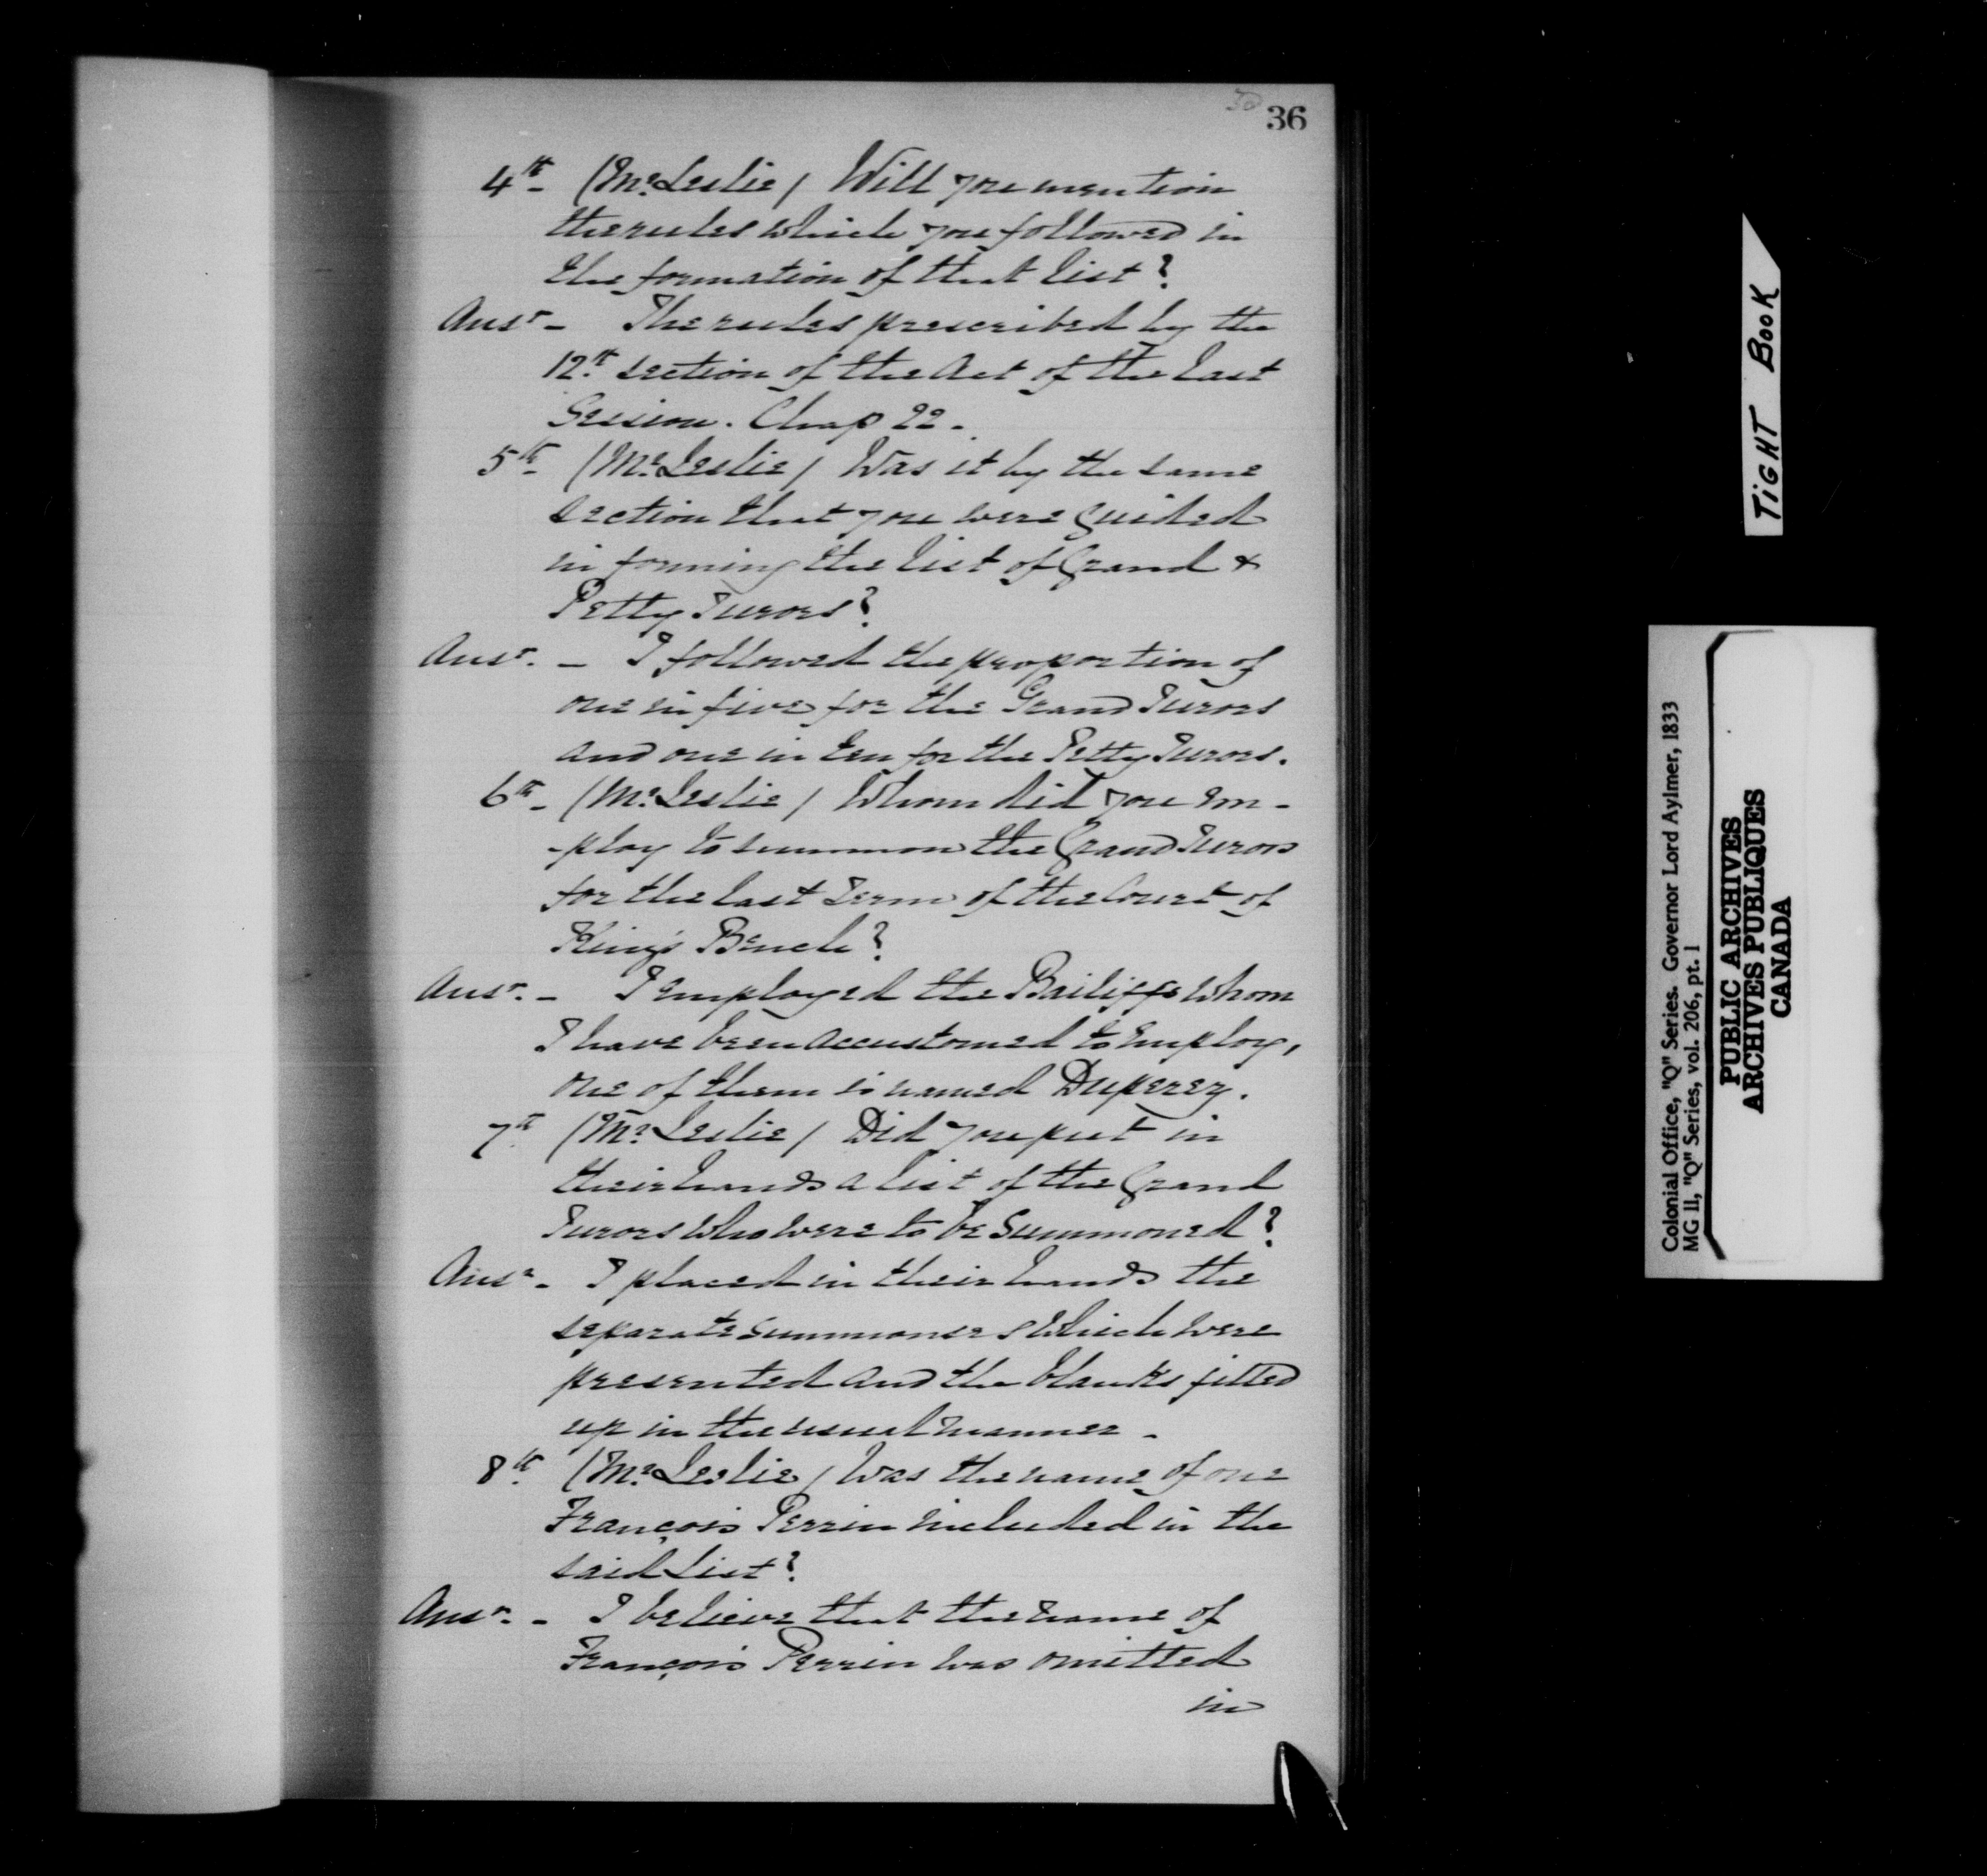 36
4th - (Mr. Leslie / Will you mention
the rules which you followed in
the formation of that list?
Ansr - The rules prescribed by the
12th section of the Act of the last
Session. Chap 22.
5th - (Mr. Leslie / Was it by the same
section that you were guided
in forming the list of Grand &
Petty Jurors?
Ansr. - I followed the proportion of
one in five for the Grand Jurors
and one in ten for the Petty Jurors.
6th - (Mr. Leslie / Whom did you em-
-ploy to summon the Grand Jurors
for the last Term of the Court of
King's Bench?
Ansr. - I employed the Bailiffs whom
I have been accustomed to employ,
one of them is named Duperey.
7th (Mr. Leslie / Did you put in
their hands a list of the Grand
Jurors who were to be summoned?
Ansr - I placed in their hands the
separate summonses which were
presented and the blanks filled
up in the usual manner -
8th (Mr. Leslie / Was the name of one
François Perrin included in the
said list?
Ansr. - I believe that the name of
François Perrin was omitted
in
TIGHT BOOK
Colonial Office, "Q" Series. Governor Lord Aylmer, 1833
MG 11, "Q" Series, vol. 206, pt. 1
PUBLIC ARCHIVES
ARCHIVES PUBLIQUES
CANADA